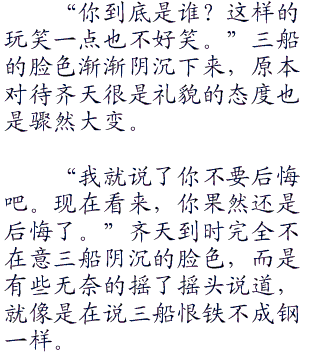 “你到底是谁？这样的
玩笑一点也不好笑。”三船
的脸色渐渐阴沉下来，原本
对待齐天很是礼貌的态度也
是骤然大变。
“我就说了你不要后悔
吧。现在看来，你果然还是
后悔了。”齐天到时完全不
在意三船阴沉的脸色，而是
有些无奈的摇了摇头说道，
就像是在说三船恨铁不成钢
一样。